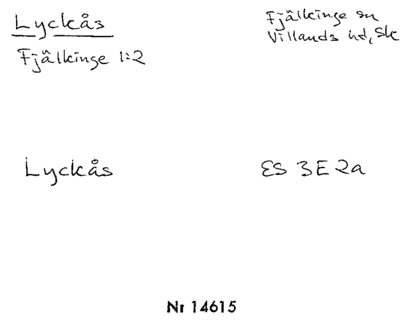 Lyckås
Fjälkinge sn
Villands hd, Sk
Fjälkinge 1:2
Lyckås
ES 3E2a
Nr 14615